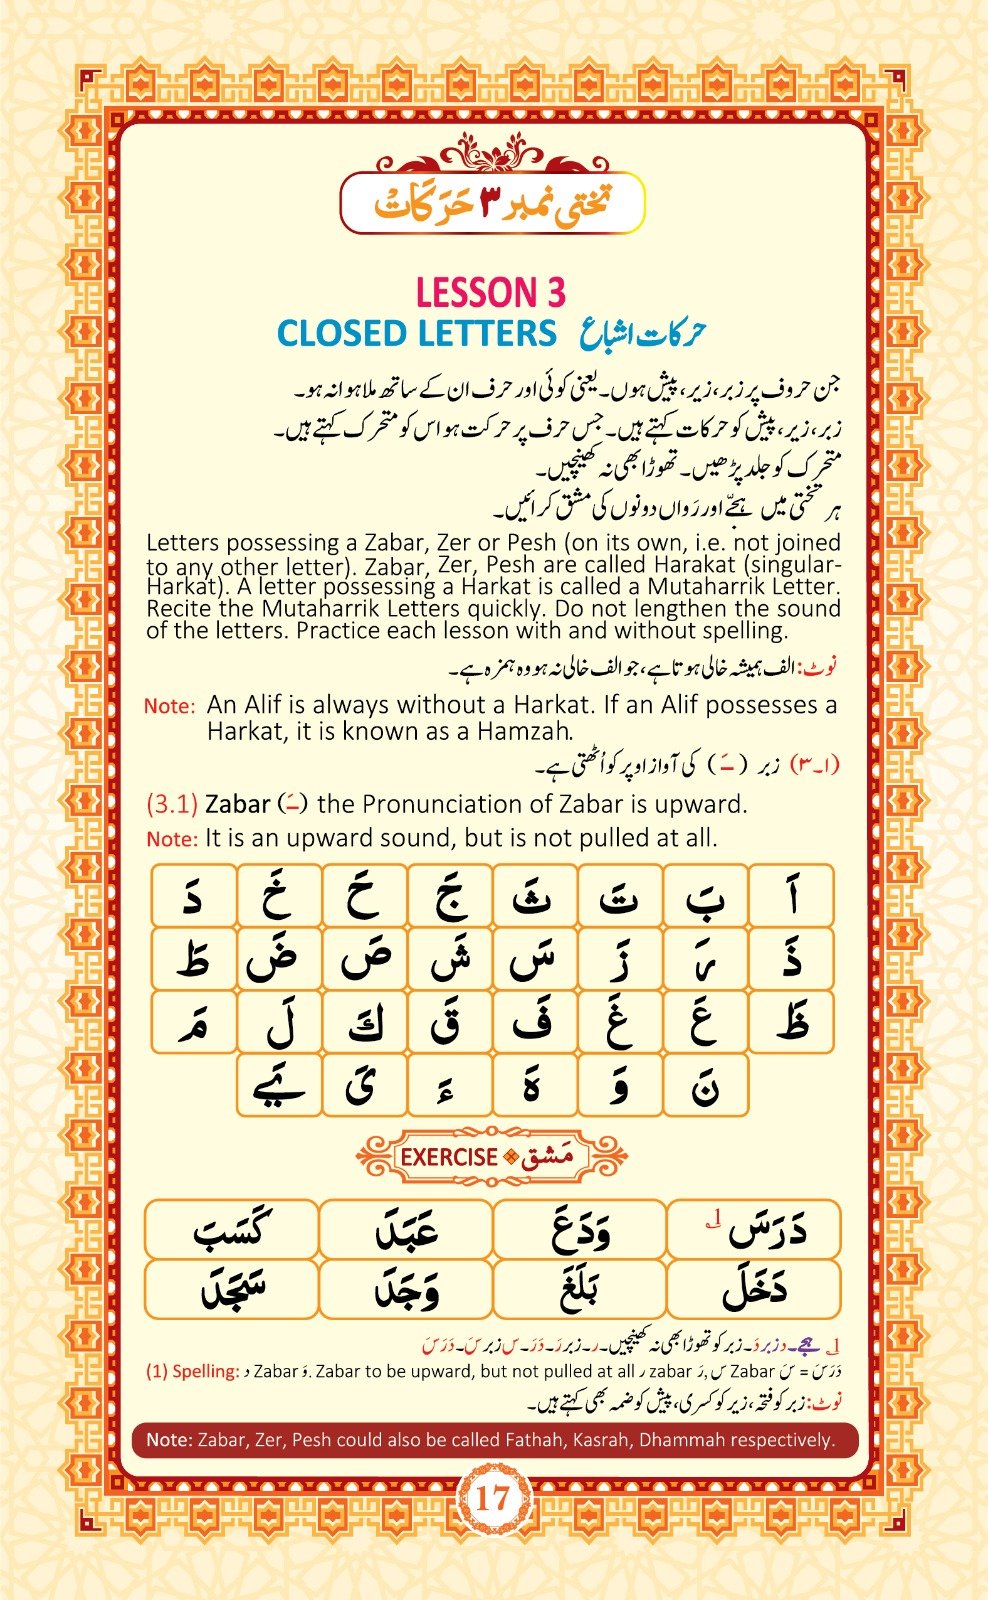 تختی نمبر ۳ حَرَکَاتْ
LESSON 3
CLOSED LETTERS حرکات اشباع
جن حروف پر زبر، زیر، پیش ہوں۔ یعنی کوئی اور حرف ان کے ساتھ ملا ہوا نہ ہو۔
زبر، زیر، پیش کو حرکات کہتے ہیں۔ جس حرف پر حرکت ہو اس کو متحرک کہتے ہیں۔
متحرک کو جلد پڑھیں۔ تھوڑا بھی نہ کھینچیں۔
ہر تختی میں ہجّے اور رَواں دونوں کی مشق کرائیں۔
Letters possessing a Zabar, Zer or Pesh (on its own, i.e. not joined
to any other letter). Zabar, Zer, Pesh are called Harakat (singular-
Harkat). A letter possessing a Harkat is called a Mutaharrik Letter.
Recite the Mutaharrik Letters quickly. Do not lengthen the sound
of the letters. Practice each lesson with and without spelling.
نوٹ: الف ہمیشہ خالی ہوتا ہے، جو الف خالی نہ ہو وہ ہمزہ ہے۔
Note: An Alif is always without a Harkat. If an Alif possesses a
Harkat, it is known as a Hamzah.
(۳۔۱) زبر (ـَ) کی آواز اوپر کو اُٹھتی ہے۔
(3.1) Zabar (ـَ) the Pronunciation of Zabar is upward.
Note: It is an upward sound, but is not pulled at all.
اَ بَ تَ ثَ جَ حَ خَ دَ
ذَ رَ زَ سَ شَ صَ ضَ طَ
ظَ عَ غَ فَ قَ كَ لَ مَ
نَ وَ هَ ءَ یَ یَے
EXERCISE مَشق
دَرَسَ ۱ وَدَعَ عَبَدَ كَسَبَ
دَخَلَ بَلَغَ وَجَدَ سَجَدَ
۱ ہجے۔ د زبر دَ۔ زبر کو تھوڑا بھی نہ کھینچیں۔ ر۔ زبر رَ۔ دَرَ۔ س زبر سَ۔ دَرَسَ
(1) Spelling: د Zabar دَ. Zabar to be upward, but not pulled at all ر zabar رَ, س Zabar سَ = دَرَسَ
نوٹ: زبر کو فتحہ، زیر کو کسری، پیش کو ضمہ بھی کہتے ہیں۔
Note: Zabar, Zer, Pesh could also be called Fathah, Kasrah, Dhammah respectively.
17